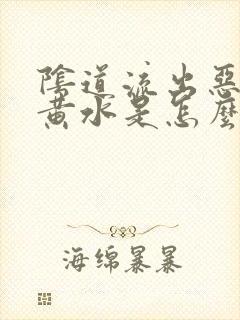 陰道流出惡
黃水是怎麼
海绵暴暴